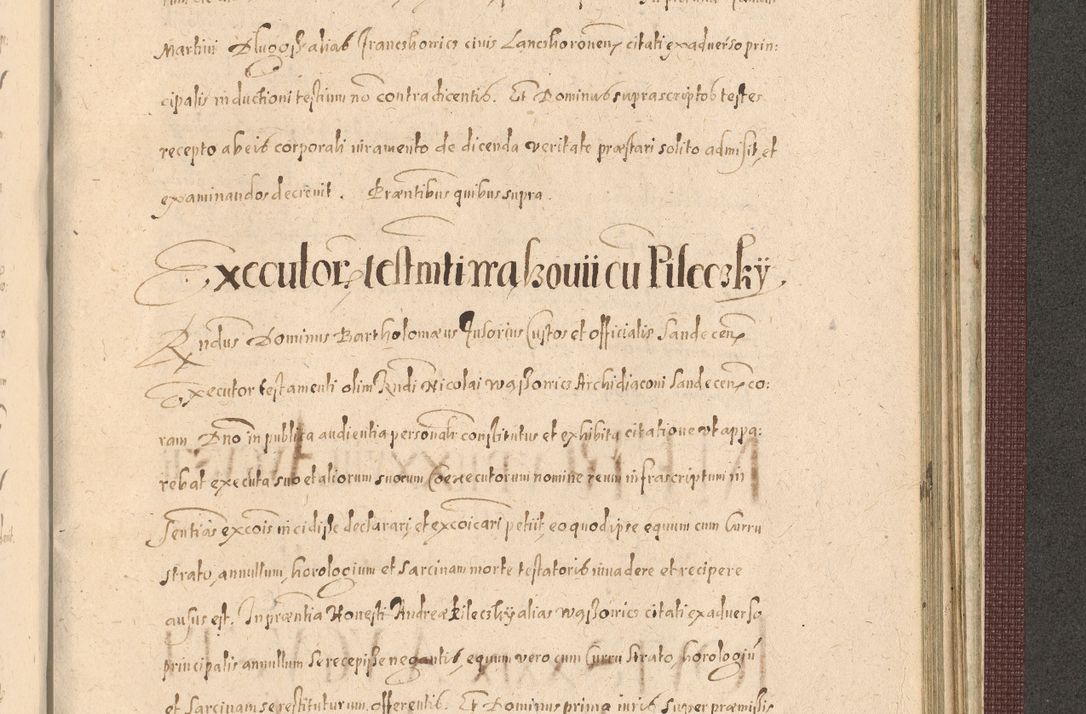 Martini Dlugosz alias Franczkowicz civis Lanczkoronen citati ex adverso prin:
cipalis inductioni testium nõ contradicentis. Et Dominus suprascriptos testes
recepto ab eis corporali iuramento de dicenda veritate præstari solito admisit, et
examinandos decrevit. Præntibus quibus supra.
Executor testmti Waszovii cũ Pileczky
Rndus Dominus Bartholomæus Fusorius Custos et officialis Sandecen
Executor testamenti olim Rndi Nicolai Waszowicz Archidiaconi Sandecen co:
ram Dno in publica audientia personalr constitutus et exhibita citatione ut appa:
rebat executa suo et aliorum suorum Coexecutorum nomine reum infrascriptum in
Sentias excois incidisse declarari, et excoicari petiit, eo quod ipse equum cum Curru
strato, annullum, horologium et sarcinam morte testatoris invadere et recipere
ausus est. In præntia Honesti Andreæ Pileczky alias Waszowicz citati ex adverso
principalis annullum se recepisse negantis, equum vero cum Curru strato, horologiũ
et sarcinam se restituturum offerentis. Et Dominus prima iuris super præmissis